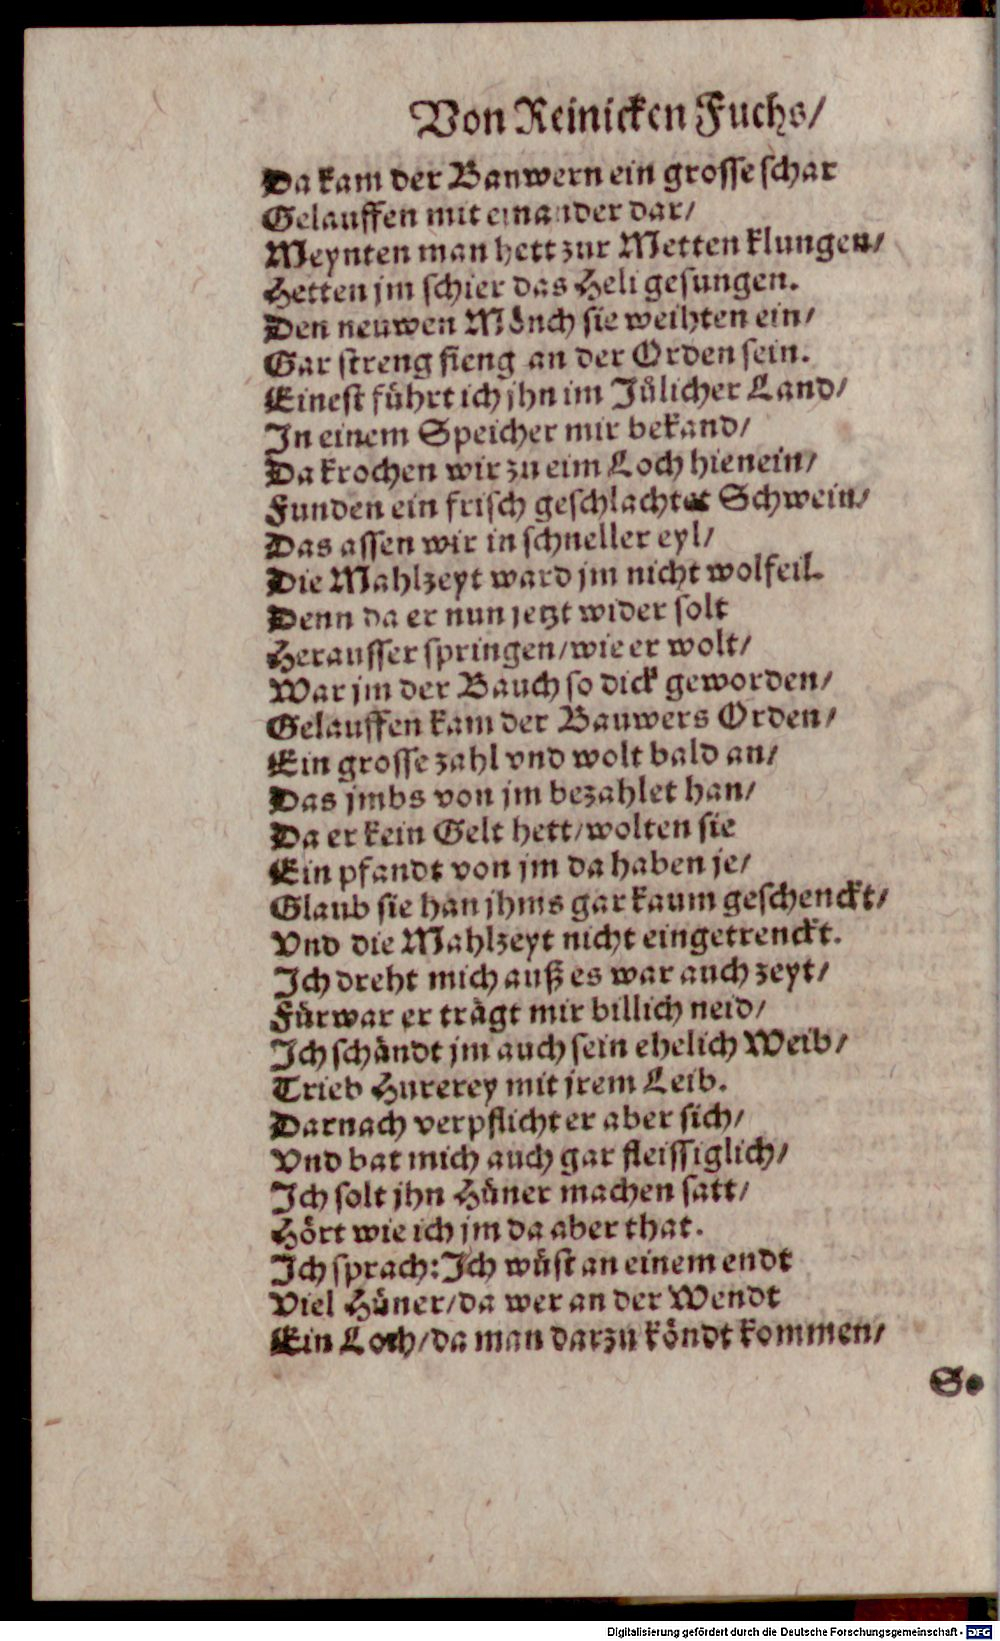 Von Reinicken Fuchs/
Da kam der Bauwern ein grosse schar
Gelauffen mit einander dar/
Meynten man hett zur Metten klungen/
Hetten jm schier das Heli gesungen.
Den neuwen Mönch sie weihten ein/
Gar streng fieng an der Orden sein.
Einest führt ich jhn im Jülicher Land/
In einem Speicher mir bekand/
Da krochen wir zu eim Loch hienein/
Funden ein frisch geschlachtet Schwein/
Das assen wir in schneller eyl/
Die Mahlzeyt ward jm nicht wolfeil.
Denn da er nun jetzt wider solt
Herausser springen/wie er wolt/
War jm der Bauch so dick geworden/
Gelauffen kam der Bauwers Orden/
Ein grosse zahl vnd wolt bald an/
Das jmbs von jm bezahlet han/
Da er kein Gelt hett/wolten sie
Ein pfandt von jm da haben je/
Glaub sie han jhms gar kaum geschenckt/
Vnd die Mahlzeyt nicht eingetrenckt.
Ich dreht mich auß es war auch zeyt/
Fürwar er trägt mir billich neid/
Ich schändt jm auch sein ehelich Weib/
Trieb Hurerey mit jrem Leib.
Darnach verpflicht er aber sich/
Vnd bat mich auch gar fleissiglich/
Ich solt jhn Hüner machen satt/
Hört wie ich jm da aber that.
Ich sprach: Ich wüst an einem endt
Viel Hüner/da wer an der Wendt
Ein Loch/da man darzu köndt kommen/
So
Digitalisierung gefördert durch die Deutsche Forschungsgemeinschaft - DFG